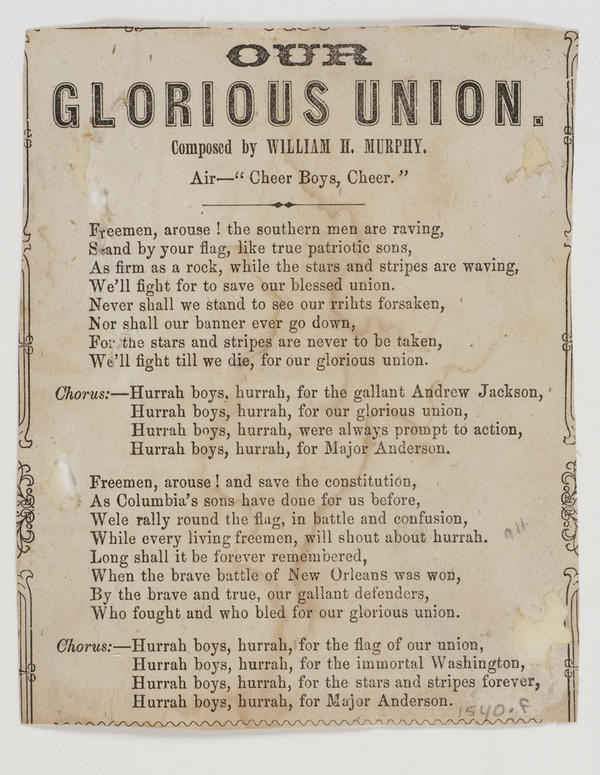 OUR
GLORIOUS UNION.
Composed by WILLIAM H. MURPHY.
Air—“ Cheer Boys, Cheer.”
Freemen, arouse ! the southern men are raving,
Stand by your flag, like true patriotic sons,
As firm as a rock, while the stars and stripes are waving,
We'll fight for to save our blessed union.
Never shall we stand to see our rrihts forsaken,
Nor shall our banner ever go down,
For the stars and stripes are never to be taken,
We'll fight till we die, for our glorious union.
Chorus:—Hurrah boys, hurrah, for the gallant Andrew Jackson,
Hurrah boys, hurrah, for our glorious union,
Hurrah boys, hurrah, were always prompt to action,
Hurrah boys, hurrah, for Major Anderson.
Freemen, arouse ! and save the constitution,
As Columbia's sons have done for us before,
Wele rally round the flag, in battle and confusion,
While every living freemen, will shout about hurrah.
Long shall it be forever remembered,
When the brave battle of New Orleans was won,
By the brave and true, our gallant defenders,
Who fought and who bled for our glorious union.
Chorus:—Hurrah boys, hurrah, for the flag of our union,
Hurrah boys, hurrah, for the immortal Washington,
Hurrah boys, hurrah, for the stars and stripes forever,
Hurrah boys, hurrah, for Major Anderson.
1540.F